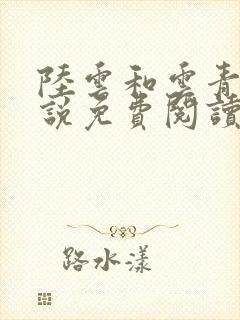 陸雲和雲青
說免費閱讀
路水漾